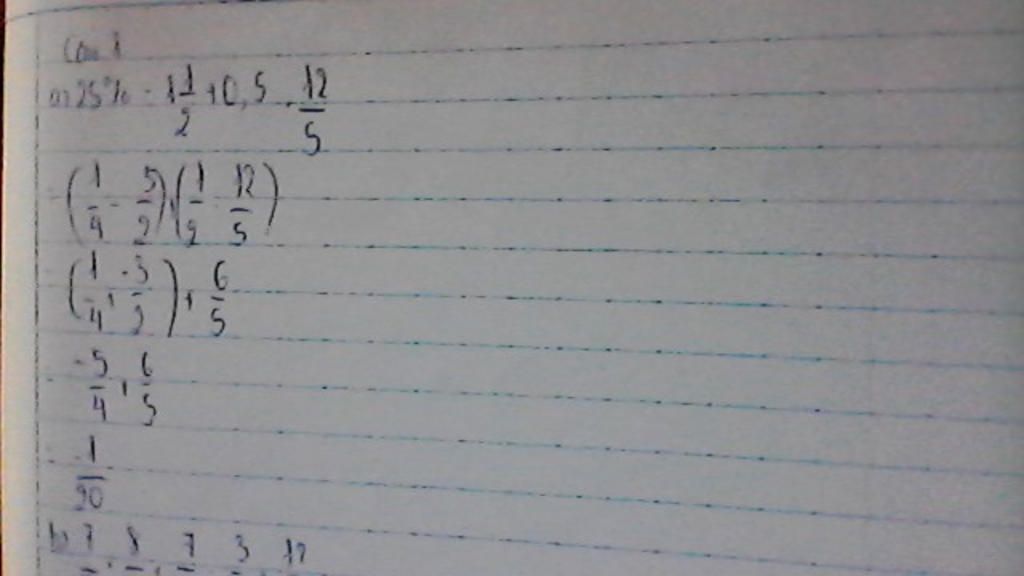 Câu 1
a) 25% - 1 1/2 + 0,5 . 12/5
= (1/4 - 3/2) + (1/2 . 12/5)
= (1/4 + -3/2) + 6/5
= -5/4 + 6/5
= -1/20
b) 7 8 7 3 12